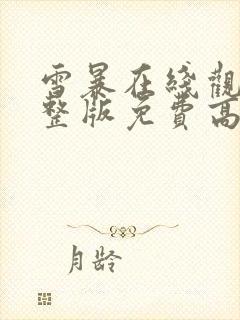 雪暴在綫觀
整版免費高
月齡